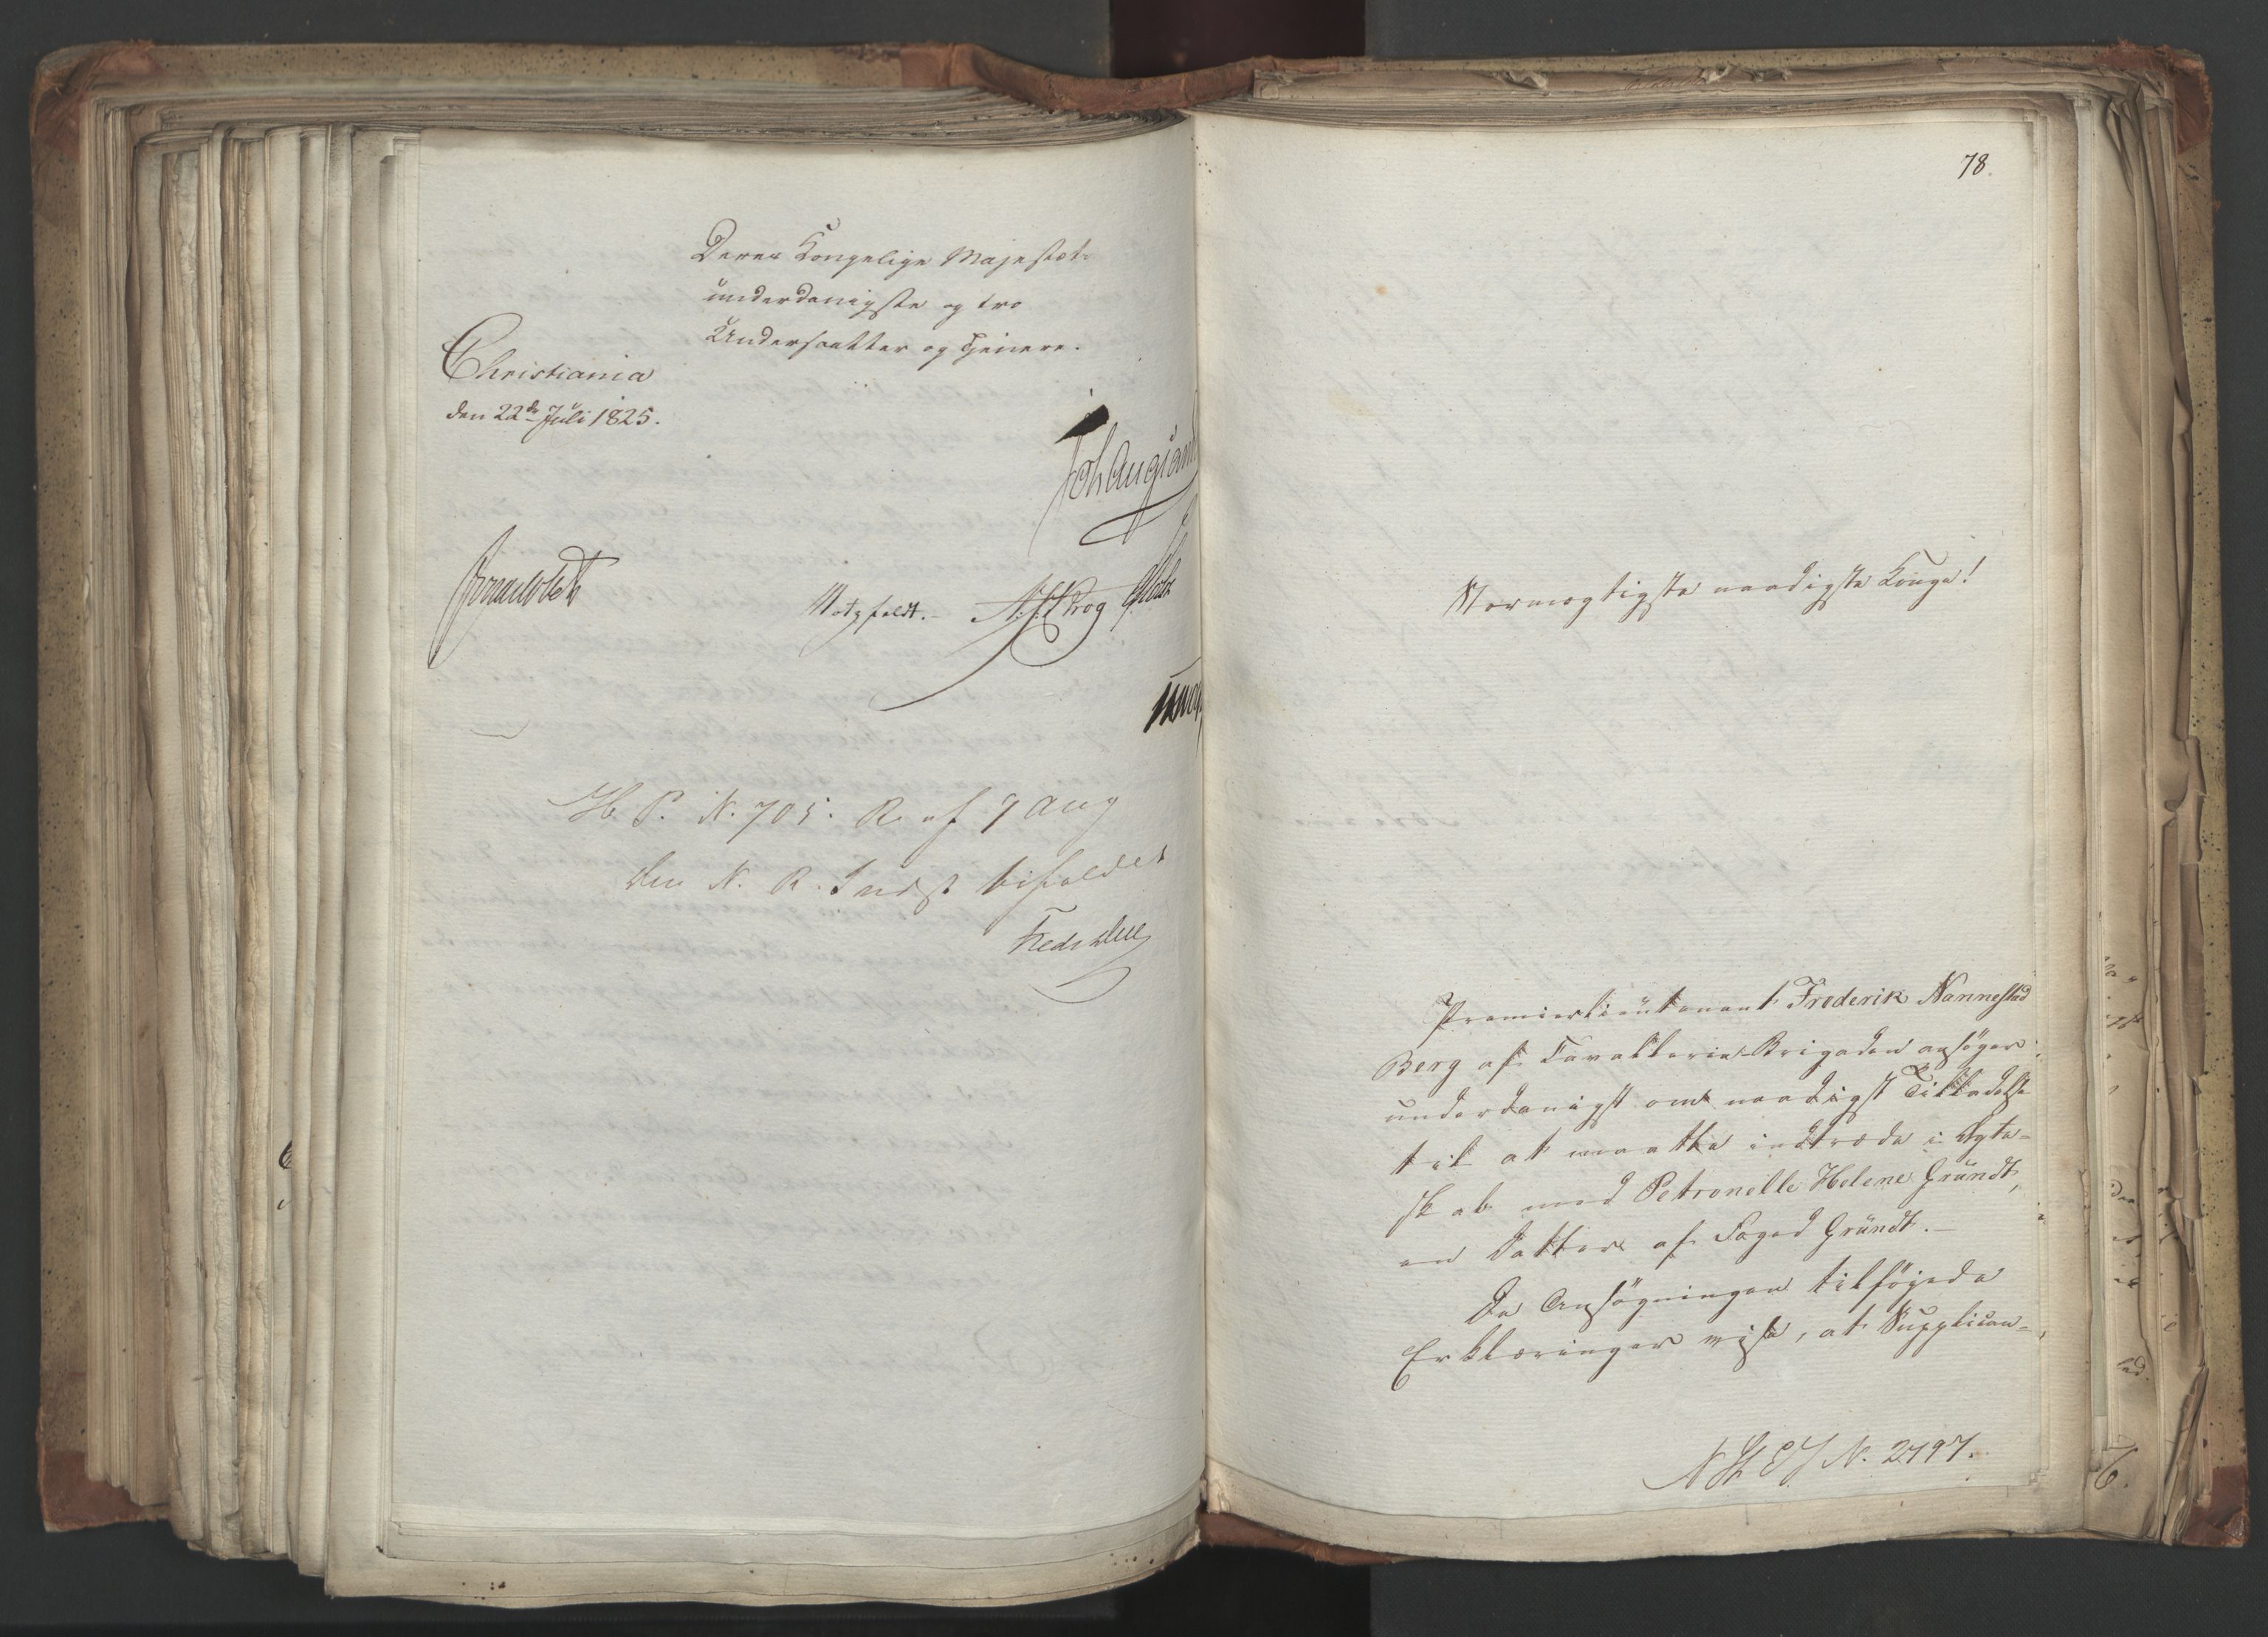 Deres Kongelige Majestæt
underdanigste og tro
Undersaatter og Tjenere.
Christiania
den 22de Juli 1825.
Joh Aug Sand
Motzfeldt.
H. P. N. 705. R. af 9 Aug
den N. R. Indst bifaldes
Fredr Due
78.
Stormægtigste naadigste Konge!
Premierlieutenant Frederik Nannestad
Berg af Cavallerie-Brigaden ansøger
underdanigst om naadigst Tilladelse
til at maatte indtræde i Ægte-
skab med Petronelle Helene Gründt,
en Datter af Foged Gründt.
De Ansøgningen tilføjede
Erklæringer vise, at Supplican-
N. 2797.